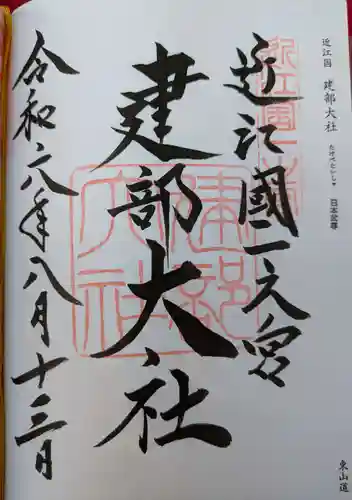 近江国 建部大社 日本武尊
たけべたいしゃ
近江國一之宮
建部大社
令和六年八月十三日
東山道
近江國一之宮
建部大社